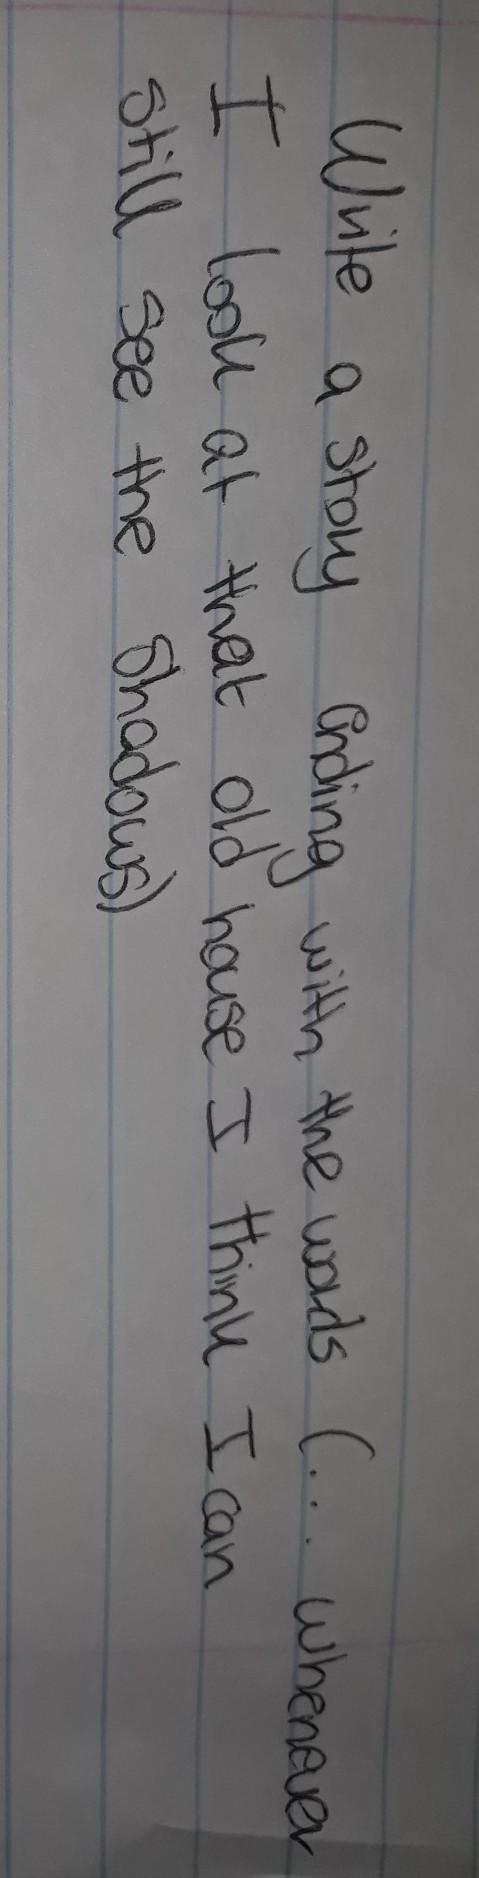 Write a story ending with the words (... whenever
I look at that old house I think I can
still see the shadows)